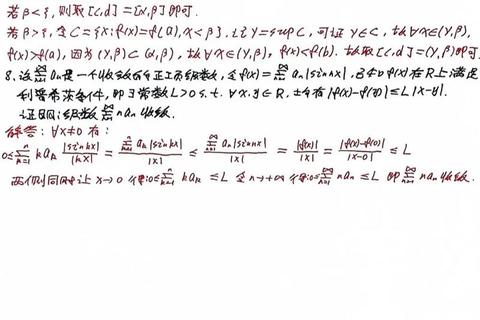 若β<ξ, 则取[c,d]=[α,β]即可.
若β>ξ, 令C={x:f(x)=f(a),x<β}. 记γ=supC, 可证γ∈C, 故∀x∈(γ,β),
f(x)>f(a), 因为(γ,β)⊂(α,β), 故∀x∈(γ,β), f(x)<f(b). 故取[c,d]=[γ,β]即可
8、设∑_{n=1}^{∞}a_n是一个收敛的正项级数, 令f(x)=∑_{n=1}^{∞}a_n|sin nx|, 已知f(x)在R上满足
利普希茨条件, 即∃常数L>0 s.t. ∀x,y∈R, 都有|f(x)-f(y)|≤L|x-y|.
证明:级数∑_{n=1}^{∞}na_n收敛.
解答: ∀x≠0有:
0≤∑_{k=1}^{n}ka_k |sin kx|/|kx| = ∑_{k=1}^{n}a_k|sin kx|/|x| ≤ ∑_{k=1}^{∞}a_k|sin kx|/|x| = |f(x)|/|x| = |f(x)-f(0)|/|x-0| ≤ L
两侧同时让x→0得:0≤∑_{k=1}^{n}ka_k≤L 令n→+∞得:0≤∑_{n=1}^{∞}na_n≤L 即∑_{n=1}^{∞}na_n收敛.